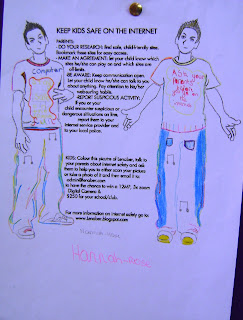 KEEP KIDS SAFE ON THE INTERNET
PARENTS:
- DO YOUR RESEARCH: find safe, child-friendly sites.
Bookmark these sites for easy access.
-MAKE AN AGREEMENT: let your child know which
sites he/she can play on and which sites are
off limits.
-BE AWARE: Keep communication open.
Let your child know he/she can talk to you
about anything. Pay attention to his/her
web-surfing habits.
- REPORT SUSPICIOUS ACTIVITY:
If you or your
child encounter suspicious or
dangerous situations on line,
report them to your
internet service provider and
to your local police.
KIDS: Colour this picture of
talk to
your parents about internet safety and ask
them to help you to either scan your picture
or take a photo of it and then email it to:
to have the chance to win a 12MP, 3x zoom
Digital Camera &
$250 for your school/club.
For more information on internet safety go to:
Computer
Ask your
Hannah-Rose